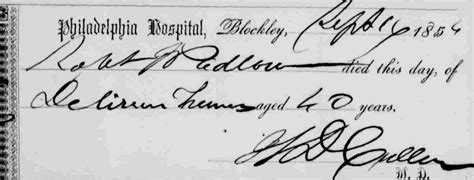 Philadelphia Hospital, Blockley, Sept 16 1854
Robt died this day, of
Delirium Tremens aged 40 years.
M. D.